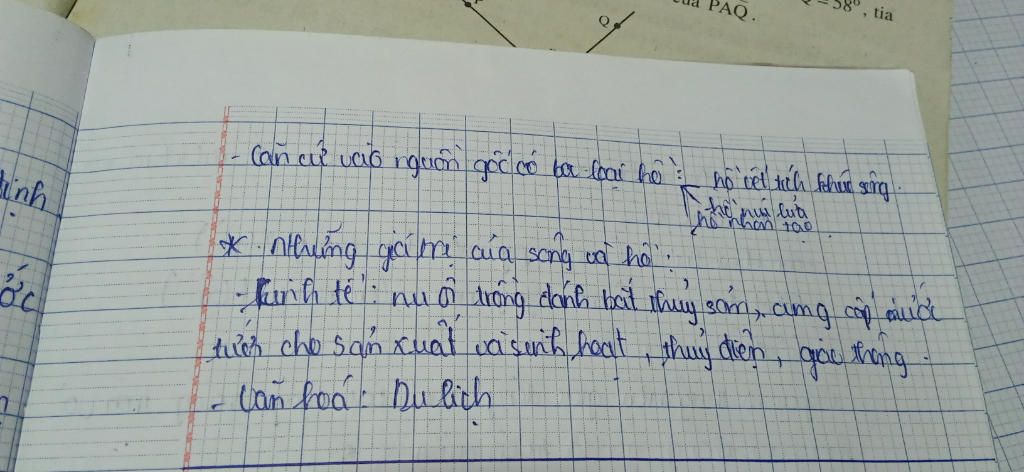 của PAQ.
Q = 58°, tia
Q
- Căn cứ vào nguồn gốc có ba loại hồ: - hồ vết tích khúc sông.
hồ núi lửa
hồ nhân tạo
* Những giá trị của sông và hồ:
- Kinh tế: nuôi trồng đánh bắt thuỷ sản, cung cấp nước
tưới cho sản xuất và sinh hoạt, thuỷ điện, giao thông.
- Văn hoá: Du lịch